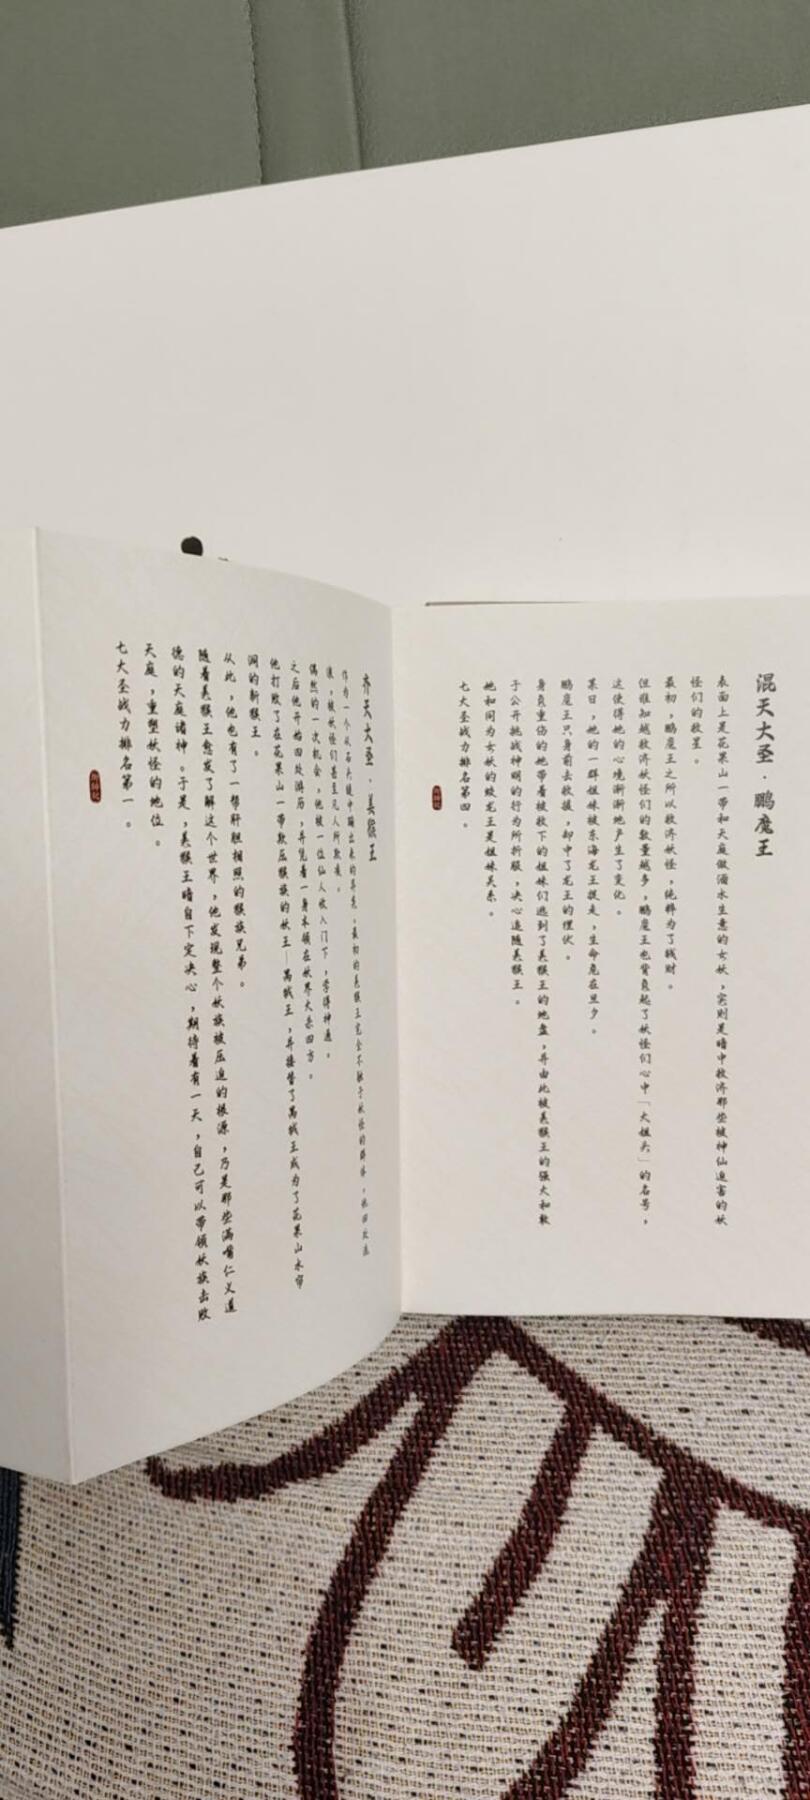 混天大圣·鹏魔王
表面上是花果山一带和天庭做酒水生意的女妖，实则是暗中救济那些被神仙迫害的妖
怪们的救星。
最初，鹏魔王之所以救济妖怪，纯粹为了钱财。
但谁知越救济妖怪们的数量越多，鹏魔王也背负起了妖怪们心中「大姐头」的名号，
这使得她的心境渐渐地产生了变化。
某日，她的一群姐妹被东海龙王捉走，生命危在旦夕。
鹏魔王只身前去救援，却中了龙王的埋伏。
身负重伤的她带着被救下的姐妹们逃到了美猴王的地盘，并由此被美猴王的强大和敢
于公开挑战神明的行为所折服，决心追随美猴王。
她和同为女妖的蛟龙王是姐妹关系。
七大圣战力排名第四。
齐天大圣·美猴王
作为一个从石头缝中蹦出来的异类，最初的美猴王完全不融于妖怪的群体，他四处流
浪，被妖怪们甚至凡人所欺凌。
偶然的一次机会，他被一位仙人收入门下，学得神通。
之后他开始四处游历，并凭着一身本领在妖界大杀四方。
他打败了在花果山一带欺压猴族的妖王—禺狨王，并接替了禺狨王成为了花果山水帘
洞的新猴王。
从此，他也有了一帮肝胆相照的猴族兄弟。
随着美猴王愈发了解这个世界，他发现整个妖族被压迫的根源，乃是那些满嘴仁义道
德的天庭诸神。于是，美猴王暗自下定决心，期待着有一天，自己可以带领妖族击败
天庭，重塑妖怪的地位。
七大圣战力排名第一。